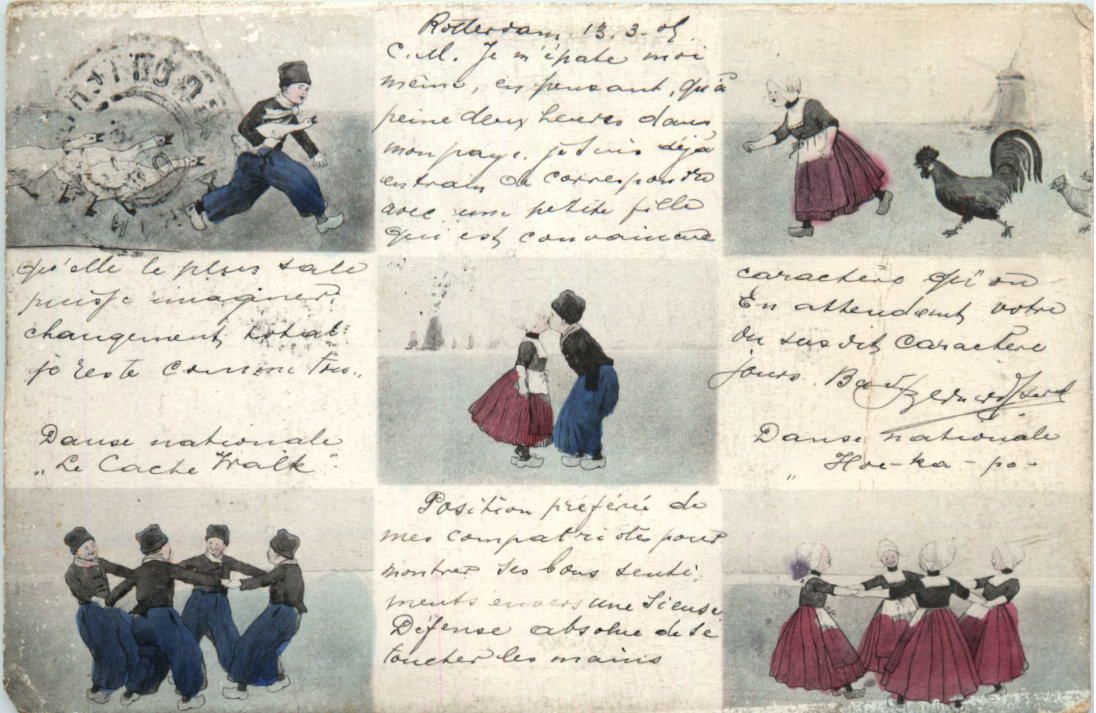 Rotterdam 13.3.05.
C.M. Je m'épate moi
même, en pensant, qu'à
peine deux heures dans
mon pays, je suis déjà
en train de correspondre
avec une petite fille
qui est convaincue
qu'elle le plus sale
puisse imaginer.
changement total:
je reste comme tou..
caractère qu'on
En attendant votre
ou susdit caractère
jours.
Danse nationale
„Le Cache Walk"
Danse nationale
„Hoe-ka-po-
Position préférée de
mes compatriotes pour
montrer ses bons senti
ments envers une
Défense absolue de se
toucher les mains